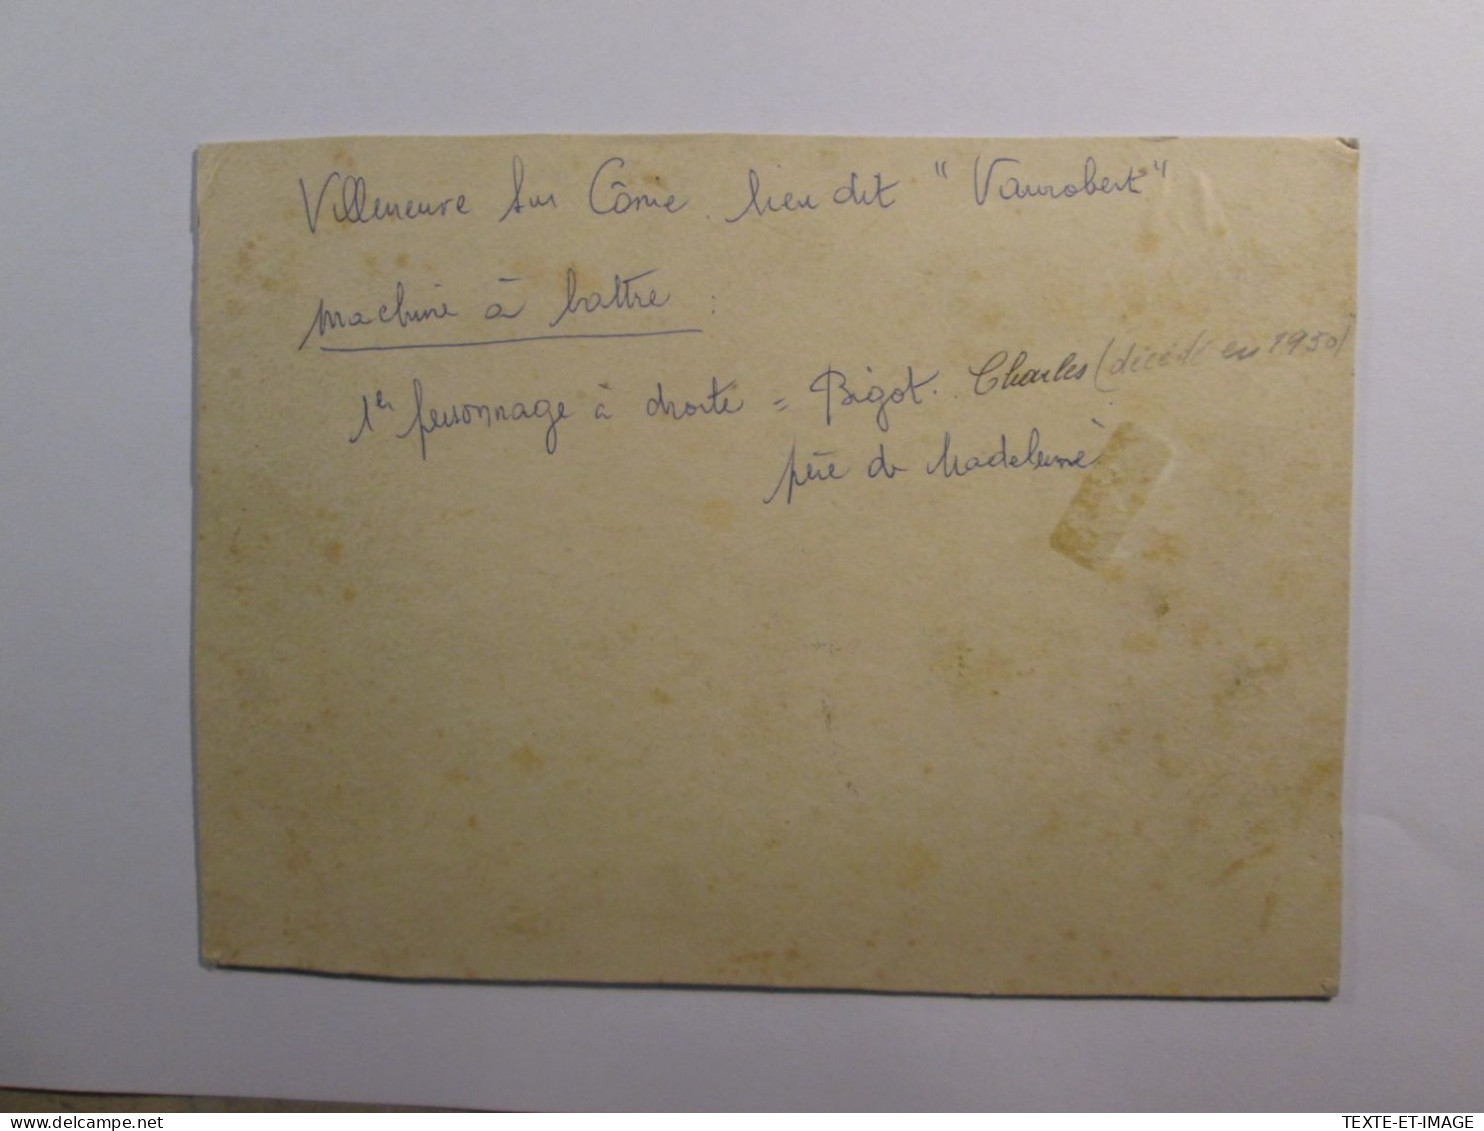 Villeneuve sur Cônie. lieu dit "Vaurobert"
machine à battre :
1er personnage à droite = Bigot. Charles (décédé en 1950)
père de Madeleine
delcampe.net
TEXTE-ET-IMAGE